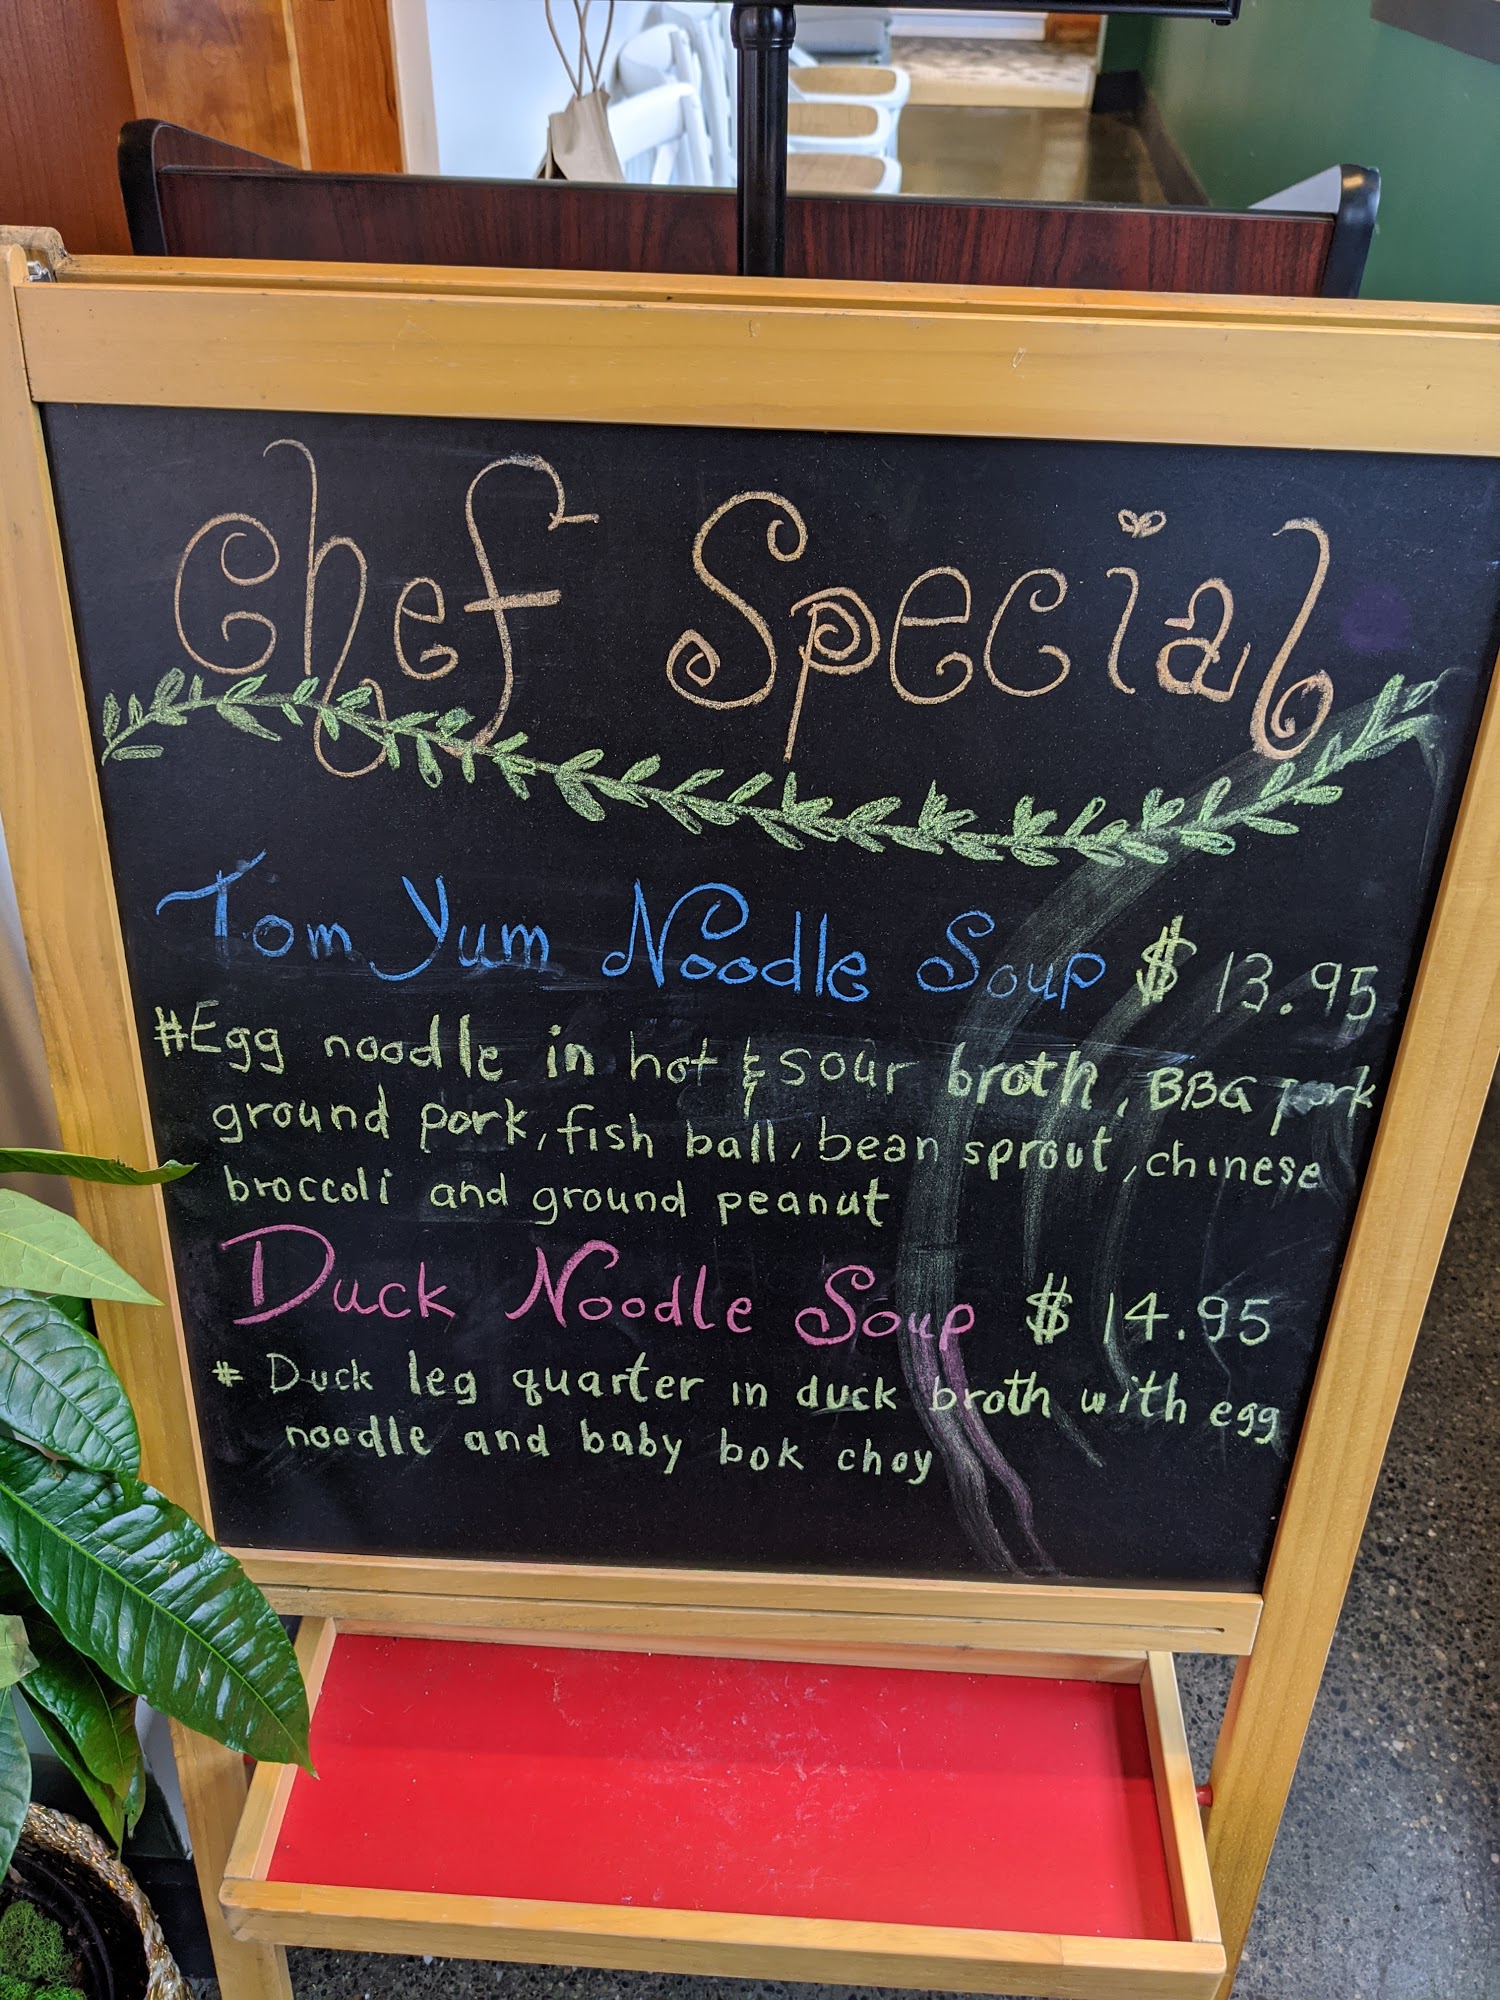 Chef Special
Tom Yum Noodle Soup $ 13.95
#Egg noodle in hot & sour broth, BBQ pork
ground pork, fish ball, bean sprout, chinese
broccoli and ground peanut
Duck Noodle Soup $ 14.95
# Duck leg quarter in duck broth with egg
noodle and baby bok choy